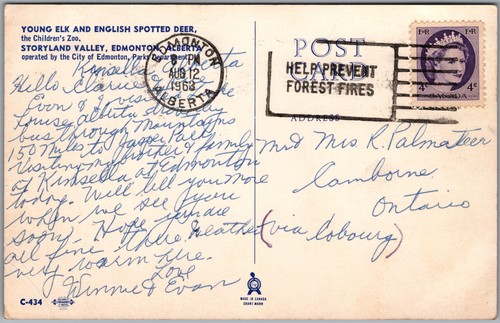 YOUNG ELK AND ENGLISH SPOTTED DEER,
the Children's Zoo.
STORYLAND VALLEY, EDMONTON, ALBERTA
operated by the City of Edmonton, Parks Department
Kinsella Alberta
Hello
Evan & I
Louise Alberta
bus through Mountains
150 miles to Jasper Park
Visiting my brother & family
at Kinsella & Edmonton
today. Will tell you more
when we see you
soon. Hope you are
all fine there. Weather
very warm here.
Love
Winnie & Evan
C-434
POST
CARD
ADDRESS
EDMONTON
PM
AUG 12
1963
ALBERTA
HELP PREVENT
FOREST FIRES
E II R
E II R
4c
4c
CANADA
Mr and Mrs R. Palmateer
Camborne
Ontario
(via Cobourg)
MADE IN CANADA